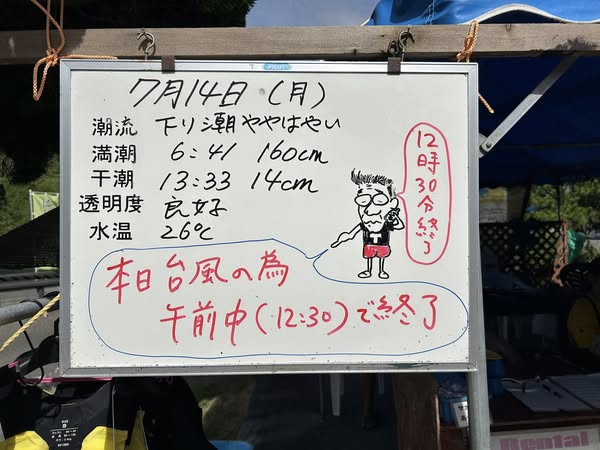 7月14日（月）
潮流 下り潮ややはやい
満潮 6:41 160cm
干潮 13:33 14cm
透明度 良好
水温 26℃
12時30分終了
T
本日台風の為
午前中(12:30)で終了
Rental